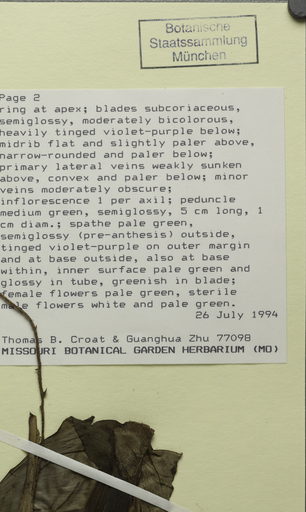 Botanische
Staatssammlung
München
Page 2
ring at apex; blades subcoriaceous,
semiglossy, moderately bicolorous,
heavily tinged violet-purple below;
midrib flat and slightly paler above,
narrow-rounded and paler below;
primary lateral veins weakly sunken
above, convex and paler below; minor
veins moderately obscure;
inflorescence 1 per axil; peduncle
medium green, semiglossy, 5 cm long, 1
cm diam.; spathe pale green,
semiglossy (pre-anthesis) outside,
tinged violet-purple on outer margin
and at base outside, also at base
within, inner surface pale green and
glossy in tube, greenish in blade;
female flowers pale green, sterile
male flowers white and pale green.
26 July 1994
Thomas B. Croat & Guanghua Zhu 77098
MISSOURI BOTANICAL GARDEN HERBARIUM (MO)